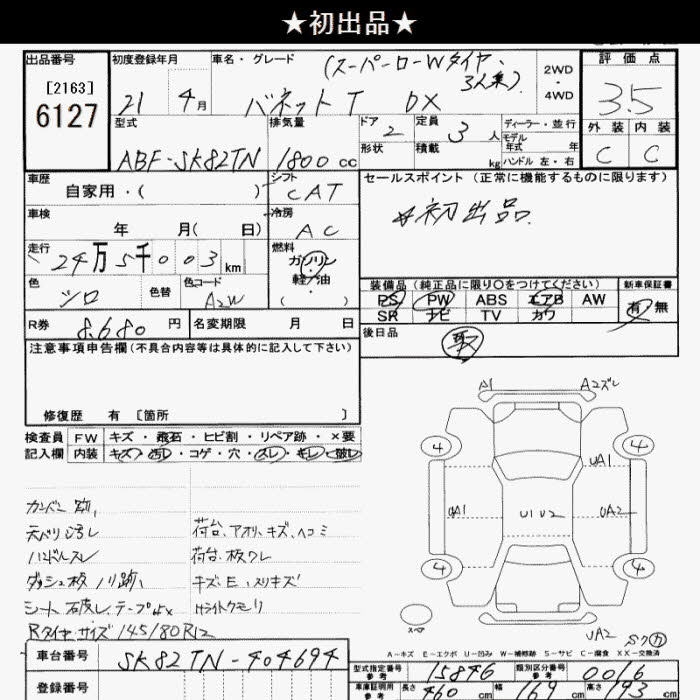 ★初出品★
出品番号 初度登録年月 車名・グレード (スーパーローWタイヤ、3人乗) 2WD 評価点
[2163] 4WD
6127 21 4月 バネットT DX 3.5
型式 排気量 ドア 定員 ディーラー・並行 外装 内装
ABF-SK82TN 1800cc 2 3人 モデル年式 年 C C
形状 積載 kg ハンドル 左・右
車歴 シフト セールスポイント(正常に機能するものに限ります)
自家用・( ) CAT 初出品
車検 冷房
年 月( 日) AC
走行 燃料
24万5千003km ガソリン
色 色替 色コード 軽油 装備品(純正品に限り○をつけてください) 新車保証書
シロ A2W ( ) PS PW ABS エアB AW 有 無
SR ナビ TV カワ
R券 8,680円 名変期限 月 日 後日品
注意事項申告欄(不具合内容等は具体的に記入して下さい)
修復歴 有 [箇所 ]
A1 A2ズレ
検査員 FW キズ・飛石・ヒビ割・リペア跡・×要
記入欄 内装 キズ・汚レ・コゲ・穴・スレ・キレ・破レ
4 4
UA1
カンバン跡
UA1 U1U2 UA2
天ベリ汚レ 荷台、アオリ、キズ、ヘコミ
ハンドルスレ 荷台板ワレ
4 4
ダッシュ板ノリ跡 キズ・E・スリキズ
シート破レ、テープ H.ライトクモリ
スペア
Rタイヤサイズ 145/80R12
UA2
A-キズ E-エクボ U-凹み W-補修跡 S-サビ C-腐食 XX-交換済
車台番号 SK82TN-404694
型式指定番号 参考 15846 類別区分番号 参考 0016
登録番号 車庫証明用 参考 長さ 460cm 幅 169cm 高さ 193cm